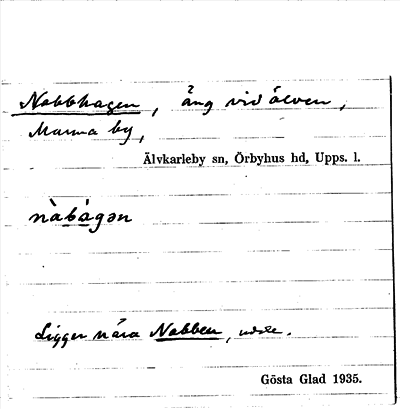 Nabbhagen, äng vid älven,
Marma by,
Älvkarleby sn, Örbyhus hd, Upps. l.
nàbàgən
Ligger nära Nabben, udde.
Gösta Glad 1935.